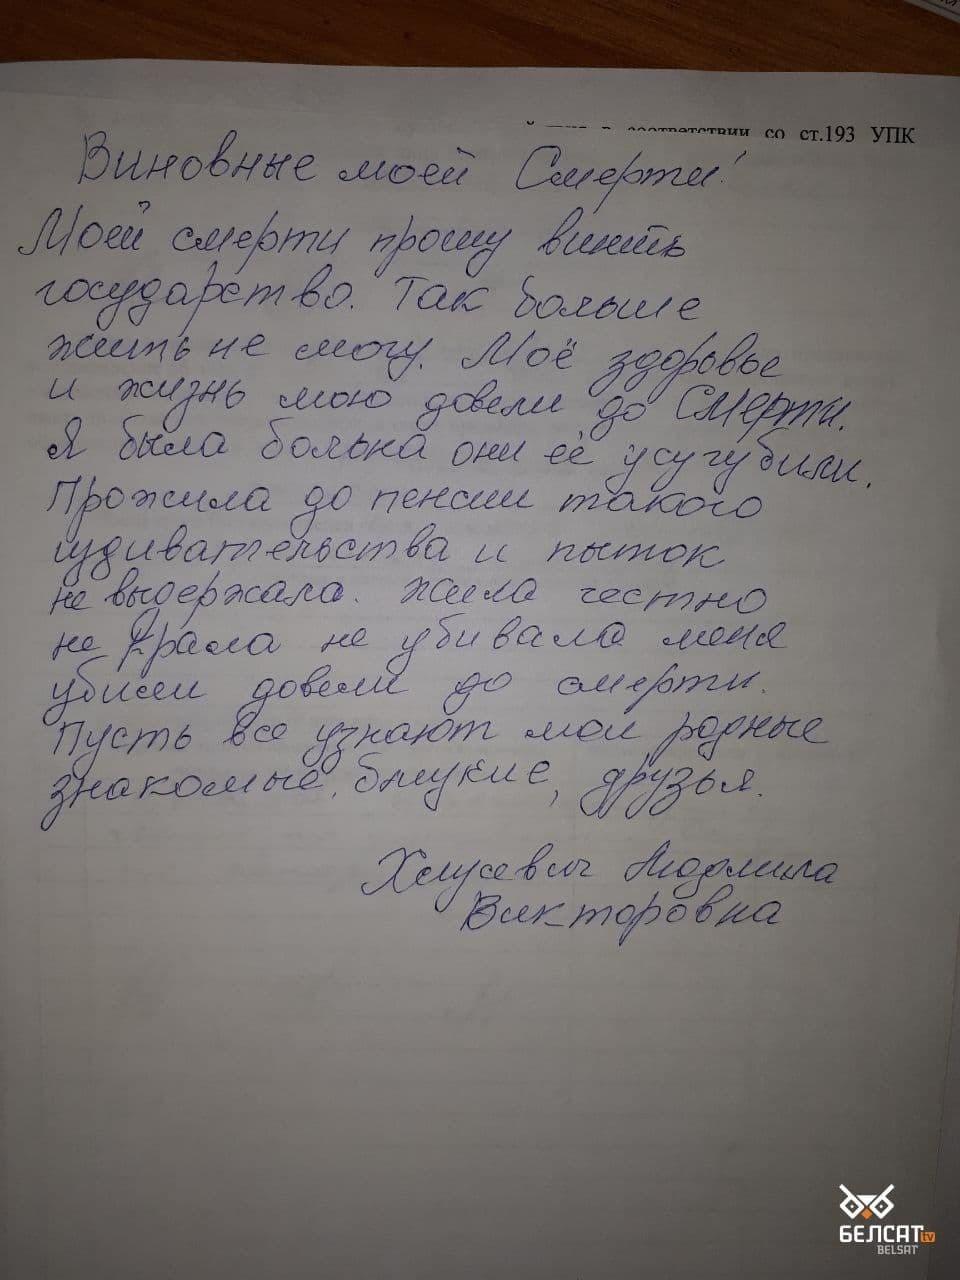 в соответствии со ст.193 УПК
Виновные моей Смерти!
Моей смерти прошу винить
государство. Так больше
жить не могу. Моё здоровье
и жизнь мою довели до Смерти.
Я была больна они её усугубили.
Прожила до пенсии такого
издивательства и пыток
не выдержала. Жила честно
не крала не убивала меня
убили довели до смерти.
Пусть все узнают мои родные
знакомые, близкие, друзья.
Людмила
Викторовна
БЕЛСАТ tv
BELSAT